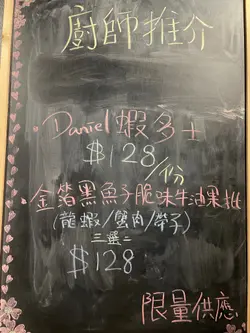 廚師推介
· Daniel蝦多士
$128/份
· 金箔黑魚子脆味牛油果批
(龍蝦/蟹肉/帶子)
三選二
$128
限量供應